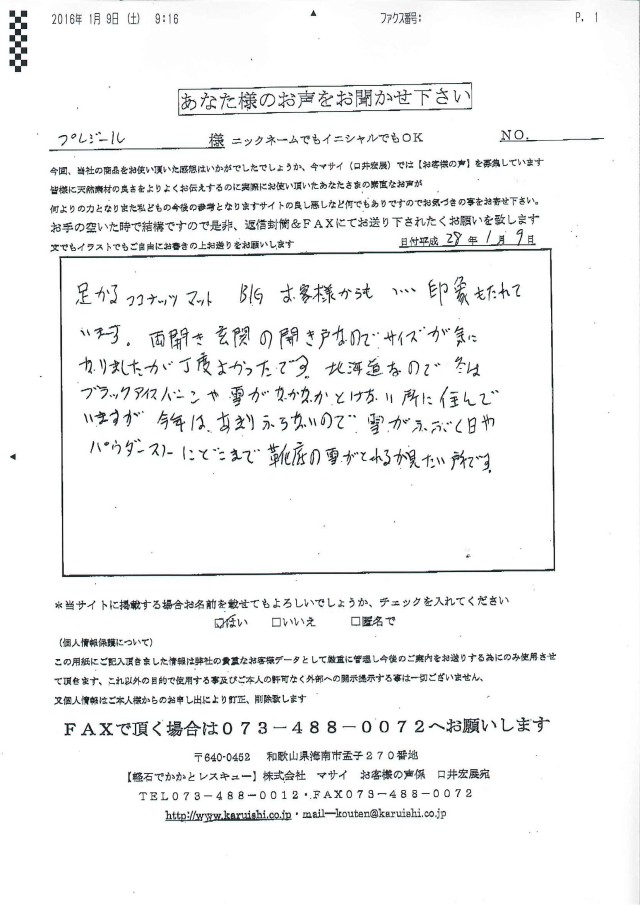 2016年 1月 9日(土) 9:16 ファクス番号: P. 1
あなた様のお声をお聞かせ下さい
プレジール 様 ニックネームでもイニシャルでもOK NO.
今回、当社の商品をお使い頂いた感想はいかがでしたでしょうか、今マサイ(口井宏展)では【お客様の声】を募集しています
皆様に天然素材の良さをよりよくお伝えするのに実際にお使い頂いたあなたさまの素直なお声が
何よりの力となりまた私どもの今後の参考となりますサイトの良し悪しなど何でもありですのでお気づきの事をお寄せ下さい。
お手の空いた時で結構ですので是非、返信封筒&FAXにてお送り下されたくお願いを致します
文でもイラストでもご自由にお書きの上お送りをお願いします 日付平成 28年 1月 9日
足かる ココナッツ マット BIG お客様からも …. 印象もたれて
います。両開き玄関の開き戸なのでサイズが気に
なりましたが丁度よかったです。北海道なので冬は
ブラックアイスバーンや雪がなかなかとけない所に住んで
いますが今年は、あまりふらないので雪がふぶく日や
パウダースノーにどこまで靴底の雪がとれるか見たい所です。
*当サイトに掲載する場合お名前を載せてもよろしいでしょうか、チェックを入れてください
☑はい □いいえ □匿名で
(個人情報保護について)
この用紙にご記入頂きました情報は弊社の貴重なお客様データとして厳重に管理し今後のご案内をお送りする為にのみ使用させ
て頂きます、これ以外の目的で使用する事及びご本人の許可なく外部への開示提示する事は一切ございません、
又個人情報はご本人様からのお申し出により訂正、削除致します
FAXで頂く場合は073-488-0072へお願いします
〒640-0452 和歌山県海南市孟子270番地
【軽石でかかとレスキュー】株式会社 マサイ お客様の声係 口井宏展宛
TEL073-488-0012・FAX073-488-0072
http://www.karuishi.co.jp・mail―kouten@karuishi.co.jp